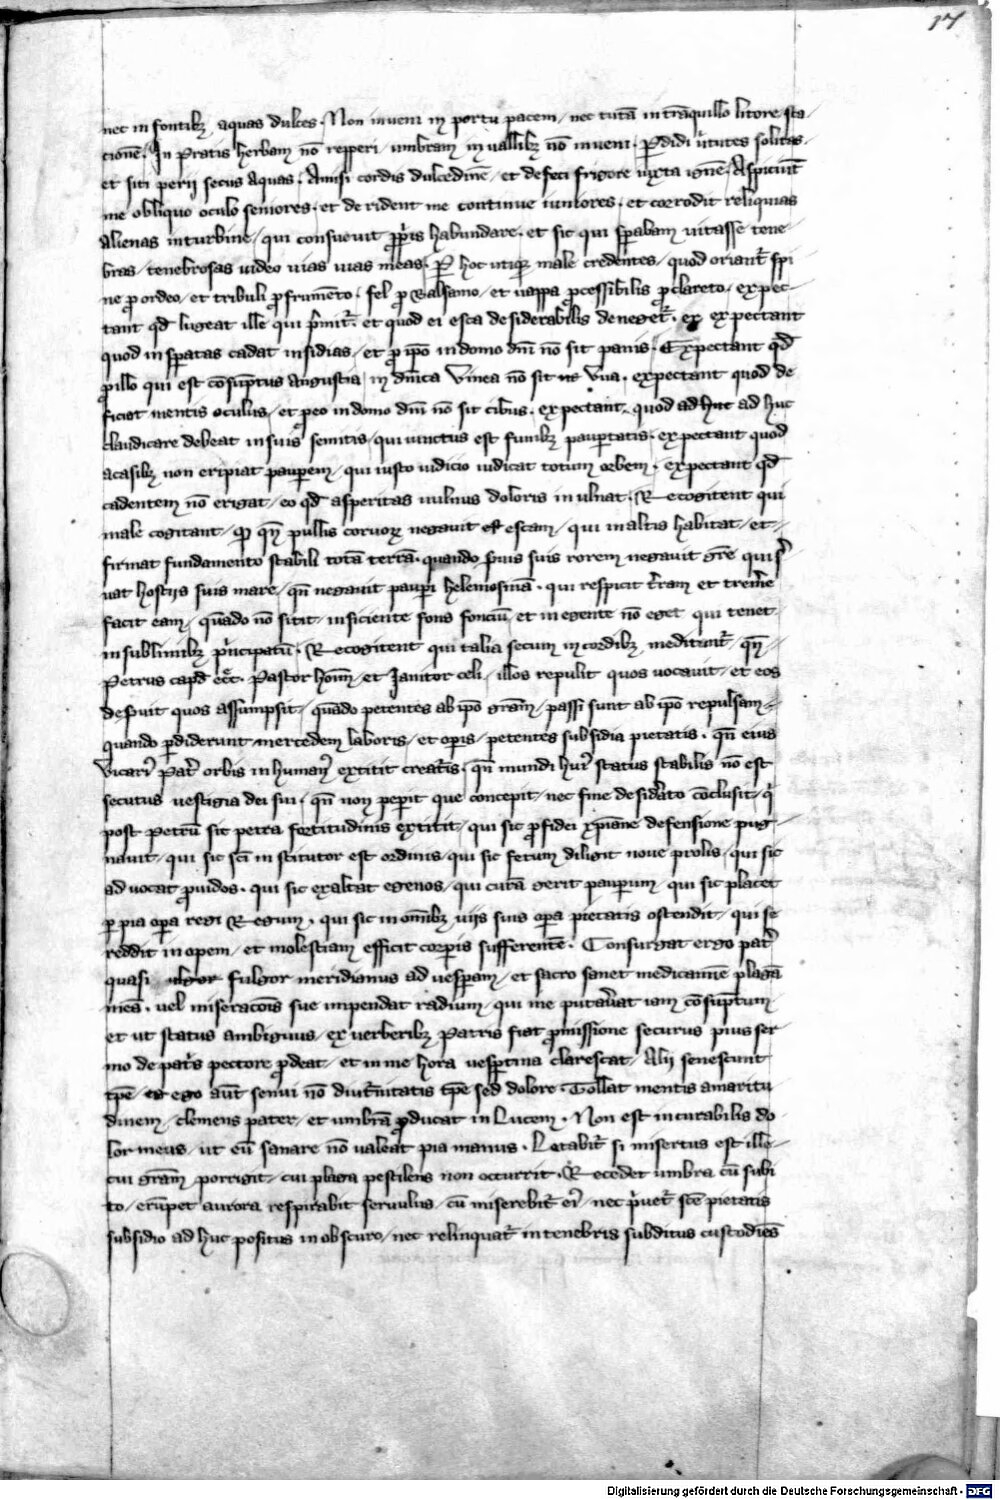 17
nec in fontibꝫ aquas dulces . Non inveni in portu pacem / nec tutā in trāquillo litore sta-
tionē . In Pratis herbam nō repperi / umbram in vallibꝫ nō inveni . Perdidi v̓tutes solitas .
et siti perii secus aquas . Amisi cordis dulcedinē / et defeci frigore iuxta ignē . Aspiciūt
me obliquo oculo seniores . et derident me continue iuniores . et corrodit reliquias
alienas in turbine / qui consuevit ꝓprijs habundare . et sic qui sperabam vitasse tene-
bras / tenebrosas video vias vias meas . Per hoc utiqꝫ male credentes / quod oriant̄ spi
ne ꝓ ordeo / et tribuli ꝓ frumēto . fel ꝓ balsamo / et vappa ꝓcessibilis ꝓ clareto / expec-
tant qd̄ lugeat ille qui p̄mit̄ . et quod ei esca desiderabilis deneget̄ . expectant
quod in speratas cadat insidias / et ꝓ ip̄o in domo dn̄i nō sit panis . Expectant qd̄
ꝓ illo qui est cōsuptus angustia / in dn̄ica vinea nō sit uva . expectant quod de
ficiat mentis oculus / et ꝓ eo in domo dn̄i nō sit cibus . expectant quod ad huc ad huc
claudicare debeat in suis semitis / qui vinctus est funibꝫ paupertatis . expectant quod
a casibꝫ non eripiat pauperem / qui iusto iudicio iudicat totum orbem . expectant qd̄
cadentem nō erigat / eo qd̄ asperitas vulnus doloris in ulnat . Recogitent qui
male cogitant / qn̄ pullis corvoꝝ negavit escam / qui in altis habitat / et
firmat fundamento stabili totā terrā . quando servis suis rorem negavit gr̄e qui
hostijs suis mare / qn̄ negavit pauperi helemosinā . qui respicit t̄ram et trem̄e
facit eam / quādo nō sitit / in siciente fons fonciū / et in egente nō eget qui tenet
in sublimibꝫ p̓ncipatū . Recogitent qui talia secum in cordibꝫ meditant̄ / qn̄
Petrus cap̄d ecc̄ . Pastor hoīm / et Janitor celi / illos repulit quos vocavit / et eos
despuit quos assumpsit / quādo petentes ab ip̄o gr̄am / passi sunt ab ip̄o repulsam /
quando perdiderunt mercedem laboris / et operis / petentes subsidia pietatis . qn̄ eius
vicari̓ Pat̓ orbis in human̓ extitit creat̄is . qn̄ mundi hui̓ status stabilis nō est
secutus vestigia dei sui . qn̄ non peperit que concepit / nec fine desid̓ato cōclusit / q̓
post Petrū sic petra fortitudinis extitit / qui sic ꝓ fidei xp̄iane defensione pug-
navit / qui sic sc̄i institutor est ordinis / qui sic fetum diligit nove prolis / qui sic
ad vocat ꝓvidos . qui sic exaltat egenos / qui curā gerit pauperum / qui sic placet
ꝑ pia op̄a regi Regum . qui sic in om̄ibꝫ vijs suis op̄a pietatis ostendit / qui se
reddit in opem / et molestiam efficit corporis sufferentē . Consurgat ergo pat̓
quasi fulgor meridianus ad vesperam / et sacro sanet medicamīe plagā
meā . vel miseracōis sue impendat radium / qui me putav̓at iam cōsuptum
et ut status ambiguus / ex verberibꝫ Patris fiat ꝓmissione securus pius ser
mo de pat̓s pectore ꝓdeat / et in me hora vespertina clarescat / Alij senescunt
tp̄e ego aut̄ senui nō diut̄nitatis tp̄e sed dolore . Tollat mentis amaritu
dinem / clemens pater / et umbrā ꝓducat in Lucem . Non est incurabilis do
lor meus / ut eū sanare nō valeat pia manus . Letabit̄ si misertus est ille
cui gr̄am porrigit / cui plaga pestilens non occurrit . Recedet umbra cū subi
to / erūpet aurora respirabit servulus / cū miserebit̄ ei̓ / nec p̓vet̄ sc̄e pietatis
subsidio ad huc positus in obscuro / nec relinquat̄ in tenebris subditus custodiēs
Digitalisierung gefördert durch die Deutsche Forschungsgemeinschaft - DFG